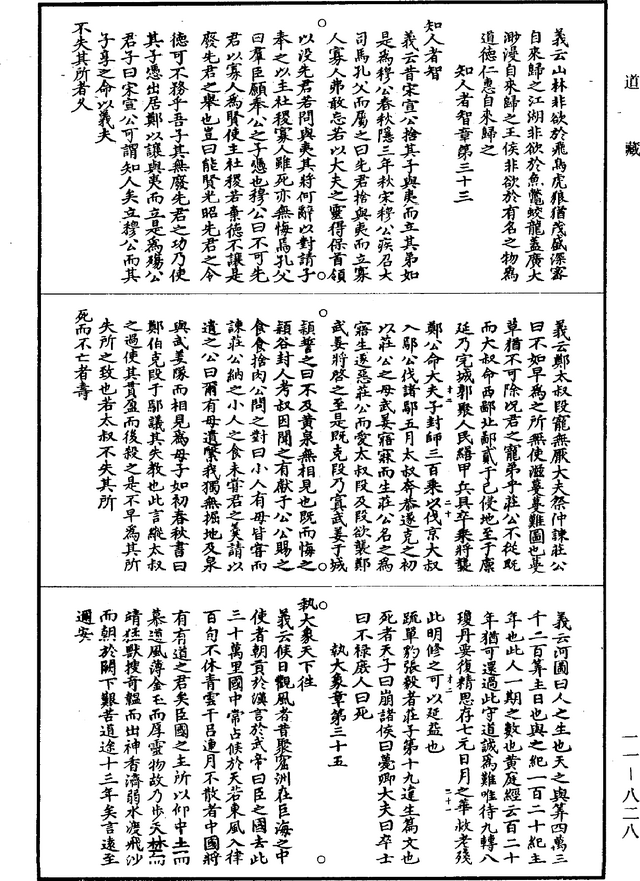 道藏
義云山林非欲於飛鳥虎狼猶茂盛深密
自來歸之江湖非欲於魚鼈蛟龍蓋廣大
渺漫自來歸之王侯非欲於有名之物為
道德仁惠自來歸之
知人者智章第三十三
知人者智
義云昔宋宣公捨其子與夷而立其弟如
是為穆公春秋隱三年秋宋穆公疾召大
司馬孔父而屬之曰先君捨與夷而立寡
人寡人弗敢忘若以大夫之靈得保首領
以沒先君若問與夷其將何辭以對請子
奉之以主社稷寡人雖死亦無悔焉孔父
曰羣臣願奉公之子憑也穆公曰不可先
君以寡人為賢使主社稷若棄德不讓是
廢先君之舉也豈曰能賢光昭先君之令
德可不務乎吾子其無廢先君之功乃使
其子憑出居鄭以讓與夷而立是為殤公
君子曰宋宣公可謂知人矣立穆公而其
子享之命以義夫
不失其所者久
義云鄭太叔段寵無厭大夫祭仲諫莊公
曰不如早為之所無使滋蔓蔓難圖也蔓
草猶不可除况君之寵弟乎莊公不從既
而大叔命西鄙北鄙貳于己侵地至于廩
延乃完城郭聚人民繕甲兵具卒乘將襲
鄭公命大夫子封師三百乘以伐京大叔
入鄢公伐諸鄢五月太叔奔恭遂克之初
以莊公之母武姜寤寐而生莊公名之為
寤生遂惡莊公而愛太叔段及段欲襲鄭
武姜將啓之至是既克段乃寘武姜于城
潁誓之曰不及黃泉無相見也既而悔之
潁谷封人考叔因聞之有獻于公公賜之
食食捨肉公問之對曰小人有母皆嘗而
諫莊公納之小人之食未嘗君之羹請以
遺之公曰爾有母遺繄我獨無掘地及泉
與武姜隊而相見為母子如初春秋書曰
鄭伯克段于鄢議其失教也此言縱太叔
之過使其貫盈而後殺之是不早為其所
失所之致也若太叔不失其所
死而不亡者壽
義云河圖曰人之生也天之與筭四萬三
千二百筭主日也與之紀一百二十紀主
年也此人一期之數也黃庭經云百二十
年猶可還過此守道誠為難唯待九轉八
瓊丹要復精思存七元日月之華救老殘
此明修之可以延益也
疏單豹張毅者莊子第十九達生篇文也
死者天子曰崩諸侯曰薨卿大夫曰卒士
曰不祿庶人曰死
執大象章第三十五
執大象天下往
義云候日觀風者昔聚窟洲在巨海之中
使者朝貢於漢言於武帝曰臣之國去此
三十萬里國中常占候於天若東風入律
百旬不休青雲干呂連月不散者中國將
有有道之君矣臣國之主所以仰中土而
慕道風薄金玉而厚靈物故乃步天林而
請猛獸搜奇藴而出神香濟弱水渡飛沙
而朝於闕下艱苦道途十三年矣言遠至
邇安
一一—八二八